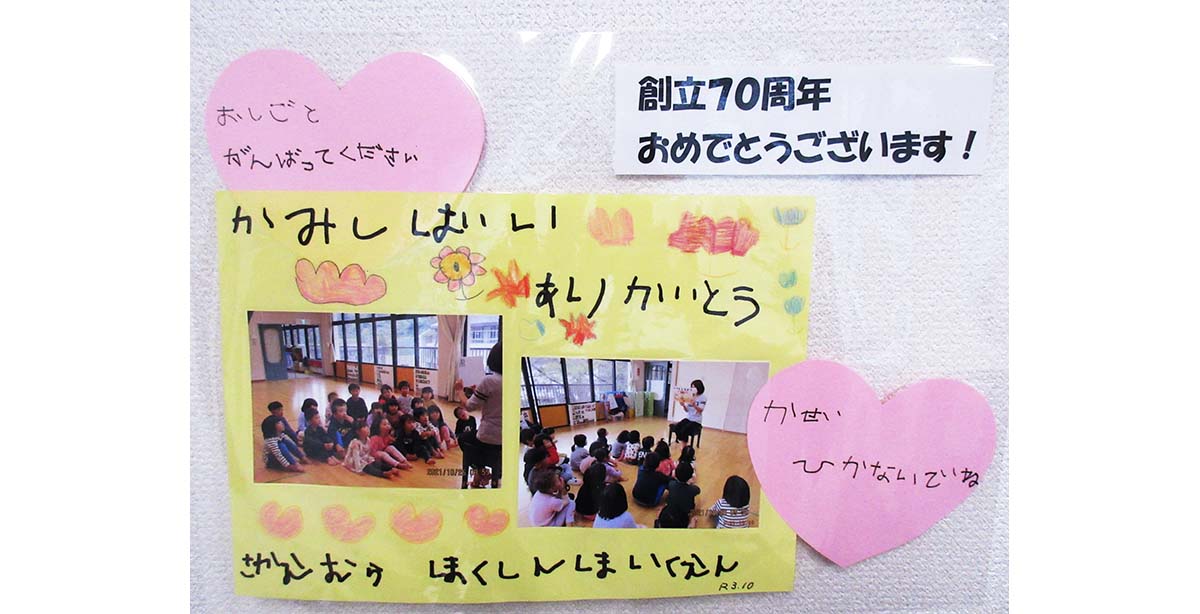 おしごと
がんばってください
創立70周年
おめでとうございます!
かみしばい
ありがとう
かぜ
ひかないでね
さかえむら ほくしんほいくえん
R3.10